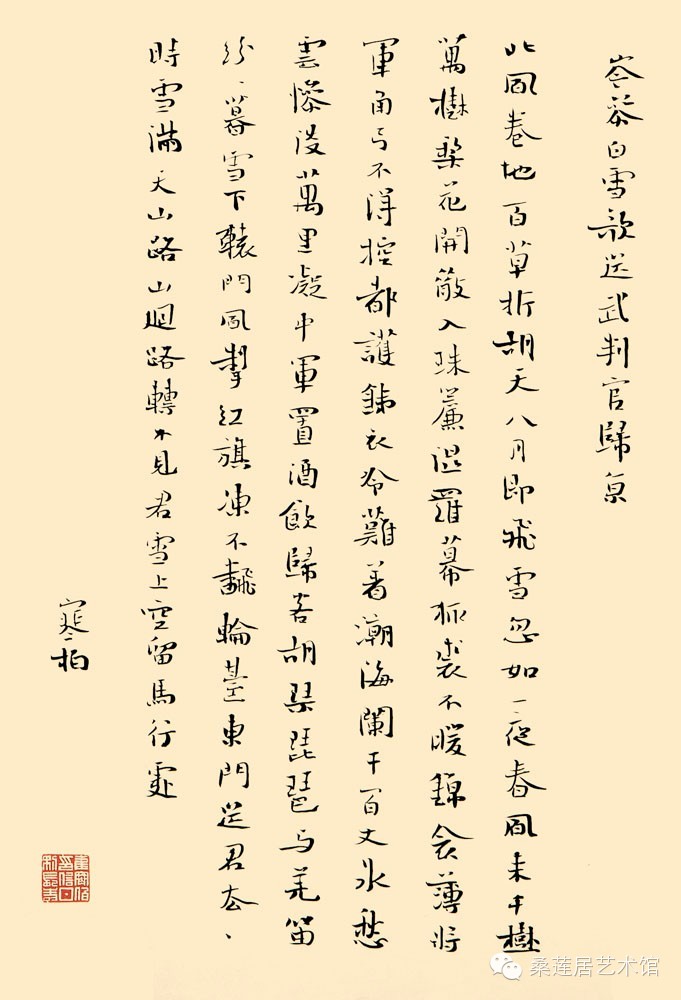 岑参白雪歌送武判官歸京
北風卷地百草折胡天八月即飛雪忽如一夜春風来千樹
萬樹梨花開散入珠簾濕羅幕狐裘不暖錦衾薄將
軍角弓不得控都護銕衣冷難着潮海闌干百丈冰愁
雲慘淡萬里凝中軍置酒飲歸客胡琴琵琶与羌笛
紛、暮雪下轅門風掣紅旗凍不翻輪臺東門送君去、
時雪滿天山路山迴路轉不見君雪上空留馬行處
寒柏
桑莲居艺术馆